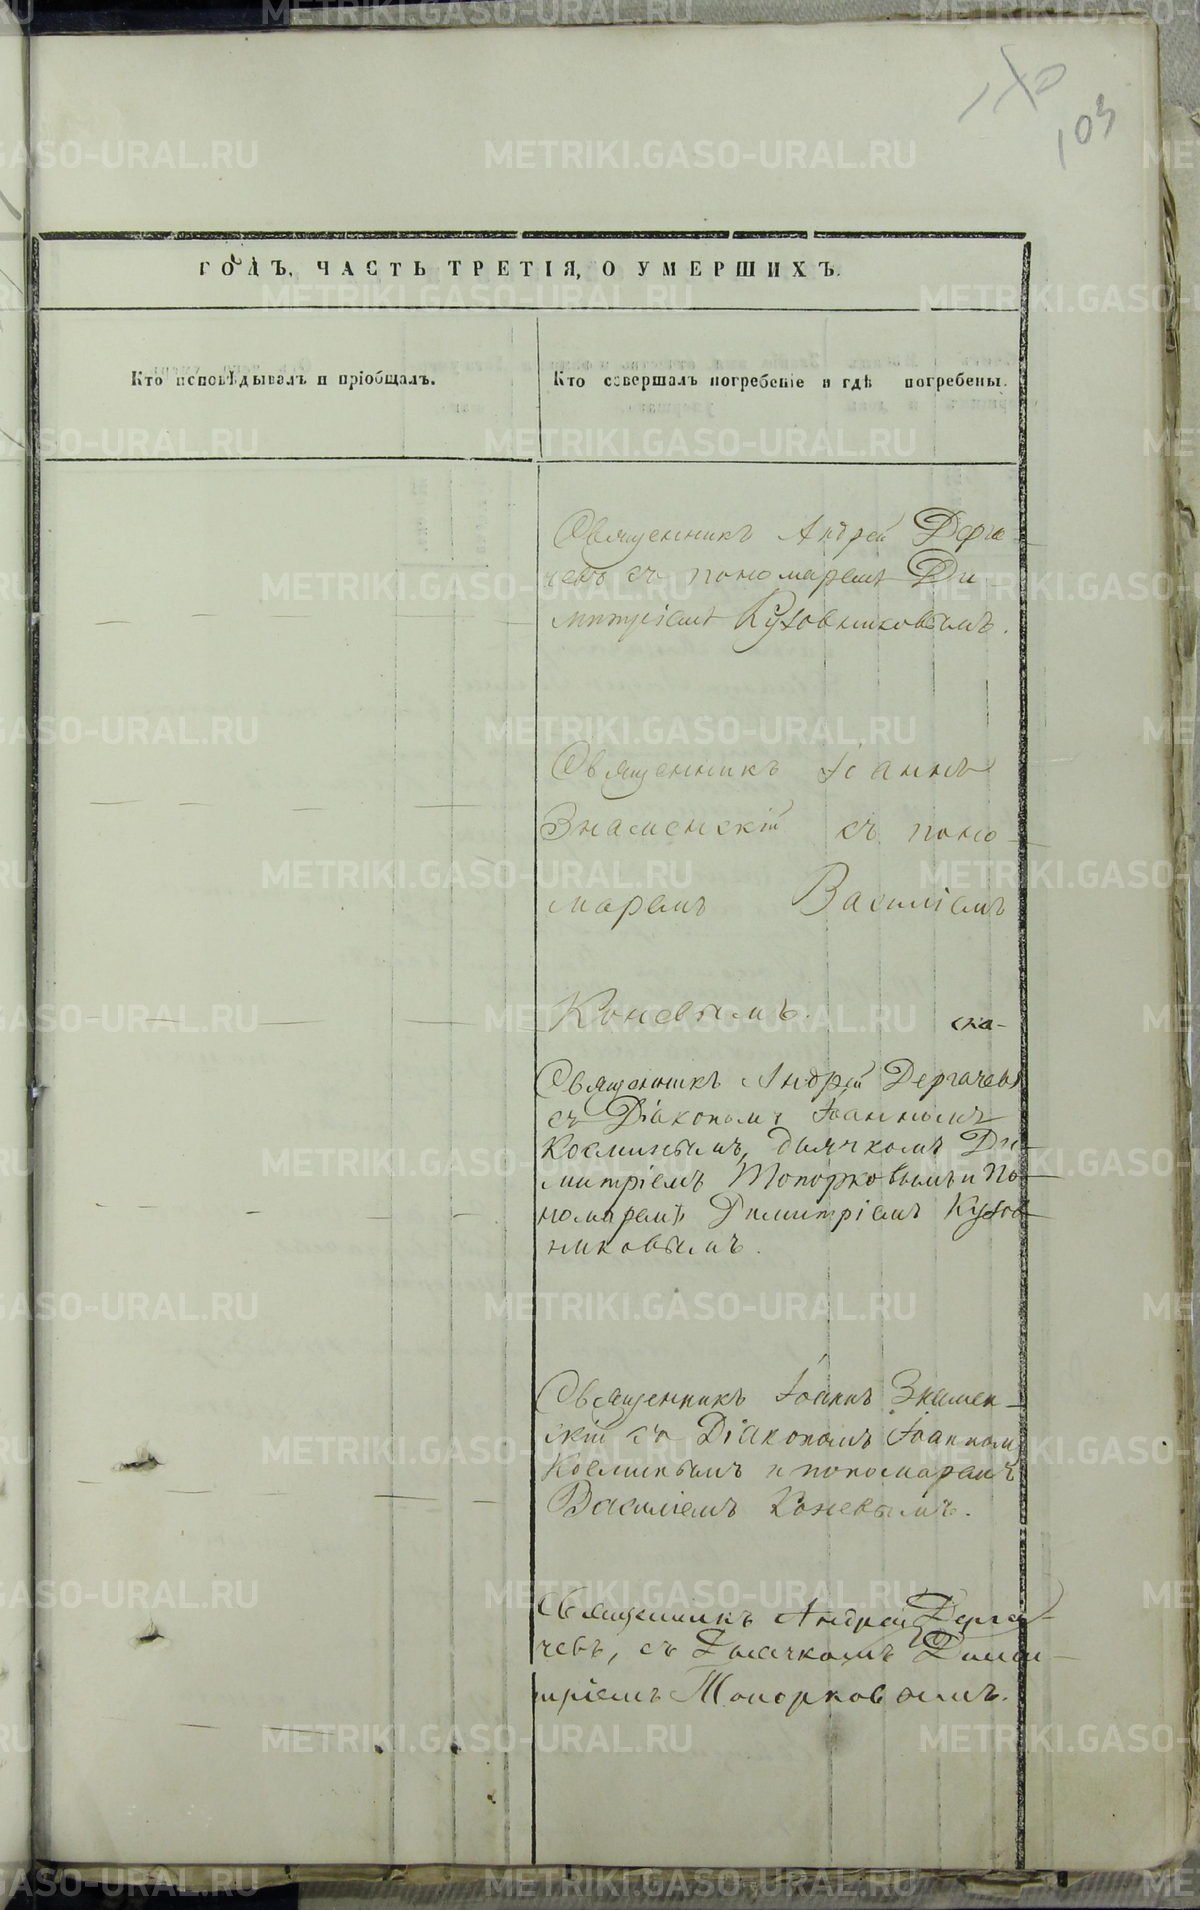 103
ГОДЪ, ЧАСТЬ ТРЕТІЯ, О УМЕРШИХЪ.
Кто исповѣдывалъ и пріобщалъ.
Кто совершалъ погребеніе и гдѣ погребены.
Священникъ Андрей Дерга
чевъ съ пономаремъ Ди
митріемъ Кузовниковымъ.
Священникъ Іоаннъ
Знаменскій съ поно
маремъ Василіемъ
Коневымъ.
Священникъ Андрей Дергачевъ
съ Діакономъ Іоанномъ
Косминымъ, дьячкомъ Ди
митріемъ Топорковымъ и По
номаремъ Димитріемъ Кузов
никовымъ.
Священникъ Іоаннъ Знамен
скій съ Діакономъ Іоанномъ
Косминымъ и пономаремъ
Василіемъ Коневымъ.
Священникъ Андрей Дерга
чевъ, съ Дьячкомъ Дими
тріемъ Топорковымъ.
METRIKI.GASO-URAL.RU